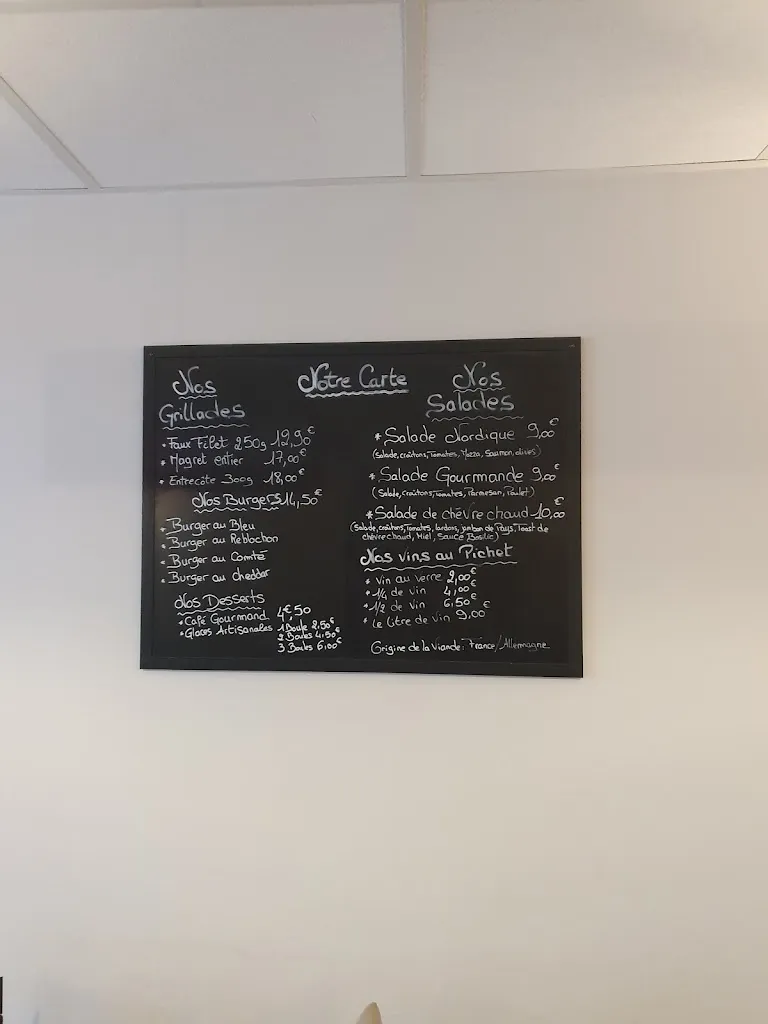 Notre Carte
Nos
Grillades
* Faux Filet 250g 12,90€
* Magret entier 17,00€
* Entrecôte 300g 18,00€
Nos Burgers 14,50€
* Burger au Bleu
* Burger au Reblochon
* Burger au Comté
* Burger au cheddar
Nos Desserts
* Café Gourmand 4€,50
* Glaces Artisanales 1 Boule 2,50€
2 Boules 4,50€
3 Boules 6,00€
Nos
Salades
* Salade Nordique 9,00€
(Salade, croûtons, Tomates, Mozza, Saumon, olives)
* Salade Gourmande 9,00€
(Salade, croûtons, Tomates, Parmesan, Poulet)
* Salade de chèvre chaud 10,00€
(Salade, croûtons, Tomates, lardons, jambon de Pays, Toast de
chèvre chaud, Miel, Sauce Basilic)
Nos vins au Pichet
* Vin au verre 2,00€
* 1/4 de vin 4,00€
* 1/2 de vin 6,50€
* Le litre de vin 9,00€
Origine de la Viande: France/Allemagne